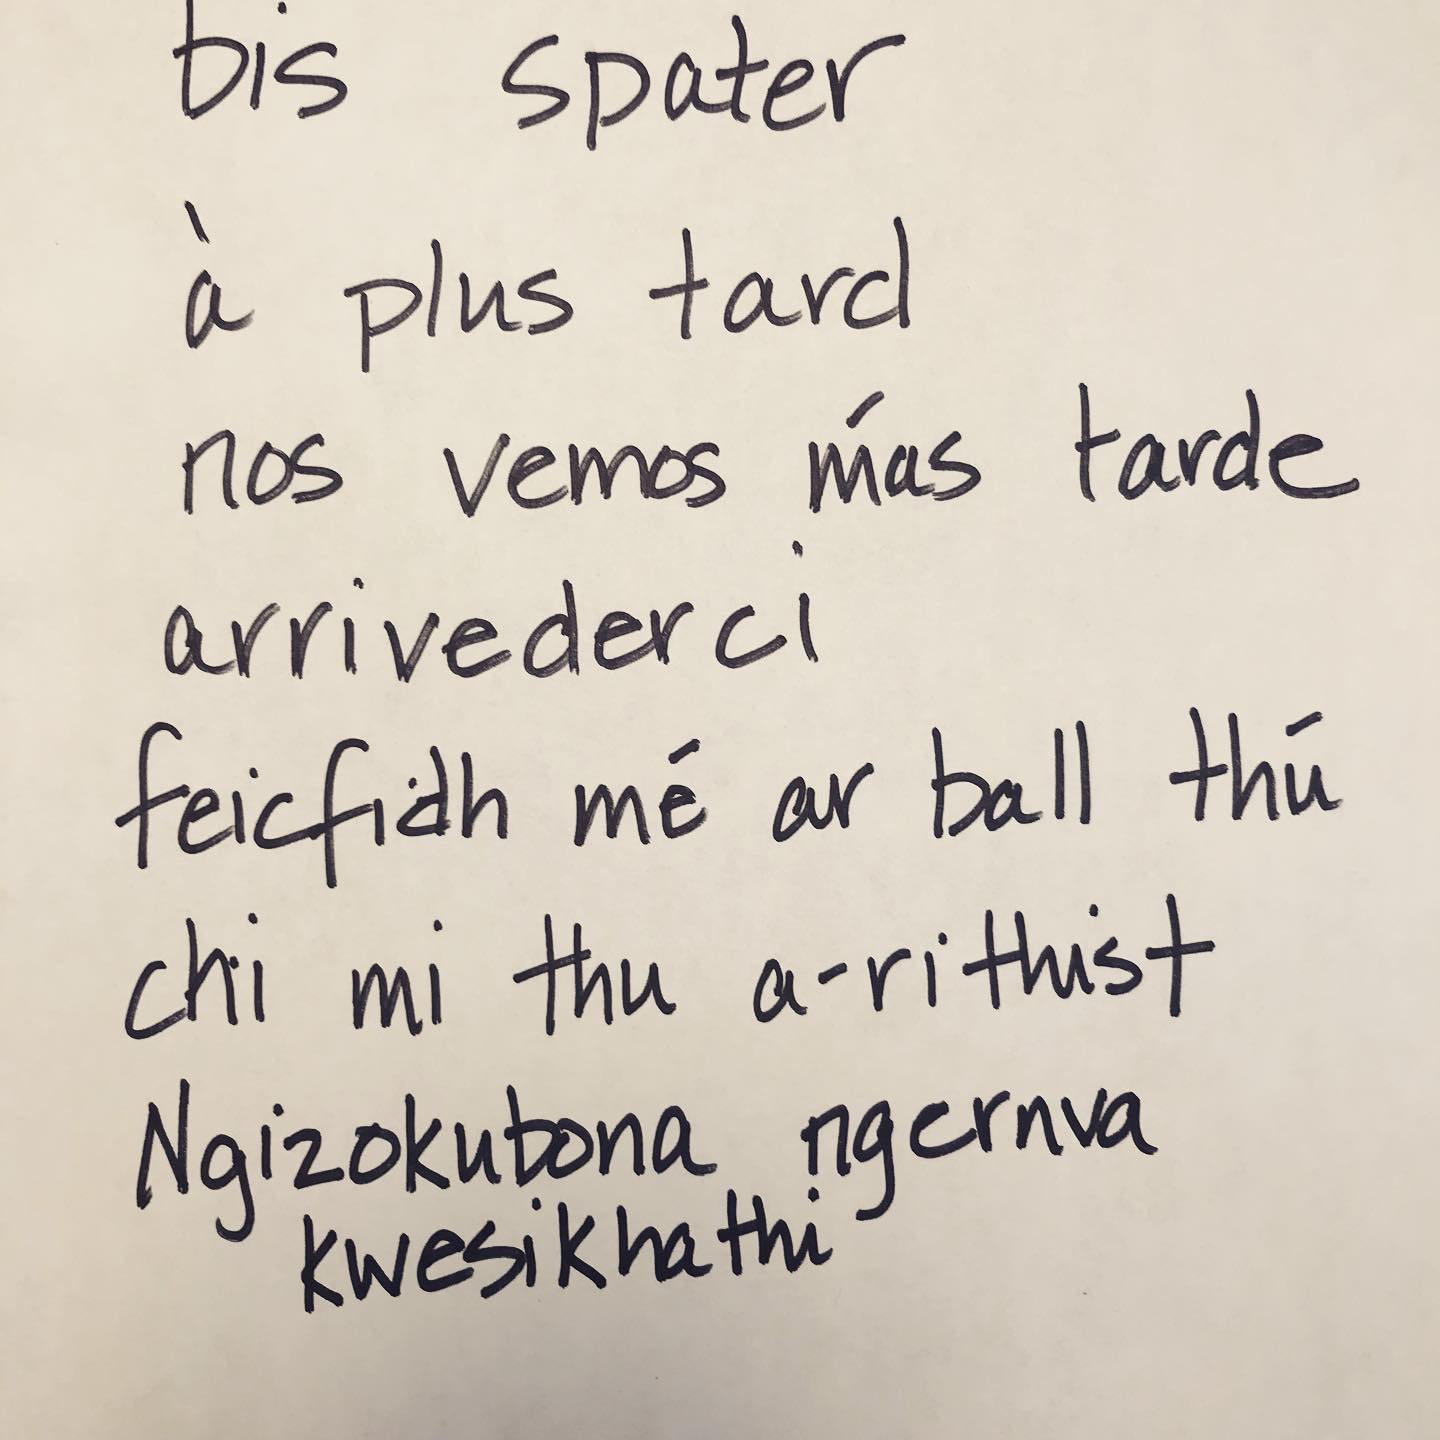 bis spater
à plus tard
nos vemos más tarde
arrivederci
feicfidh mé ar ball thú
chi mi thu a-rithist
Ngizokubona ngernva
kwesikhathi